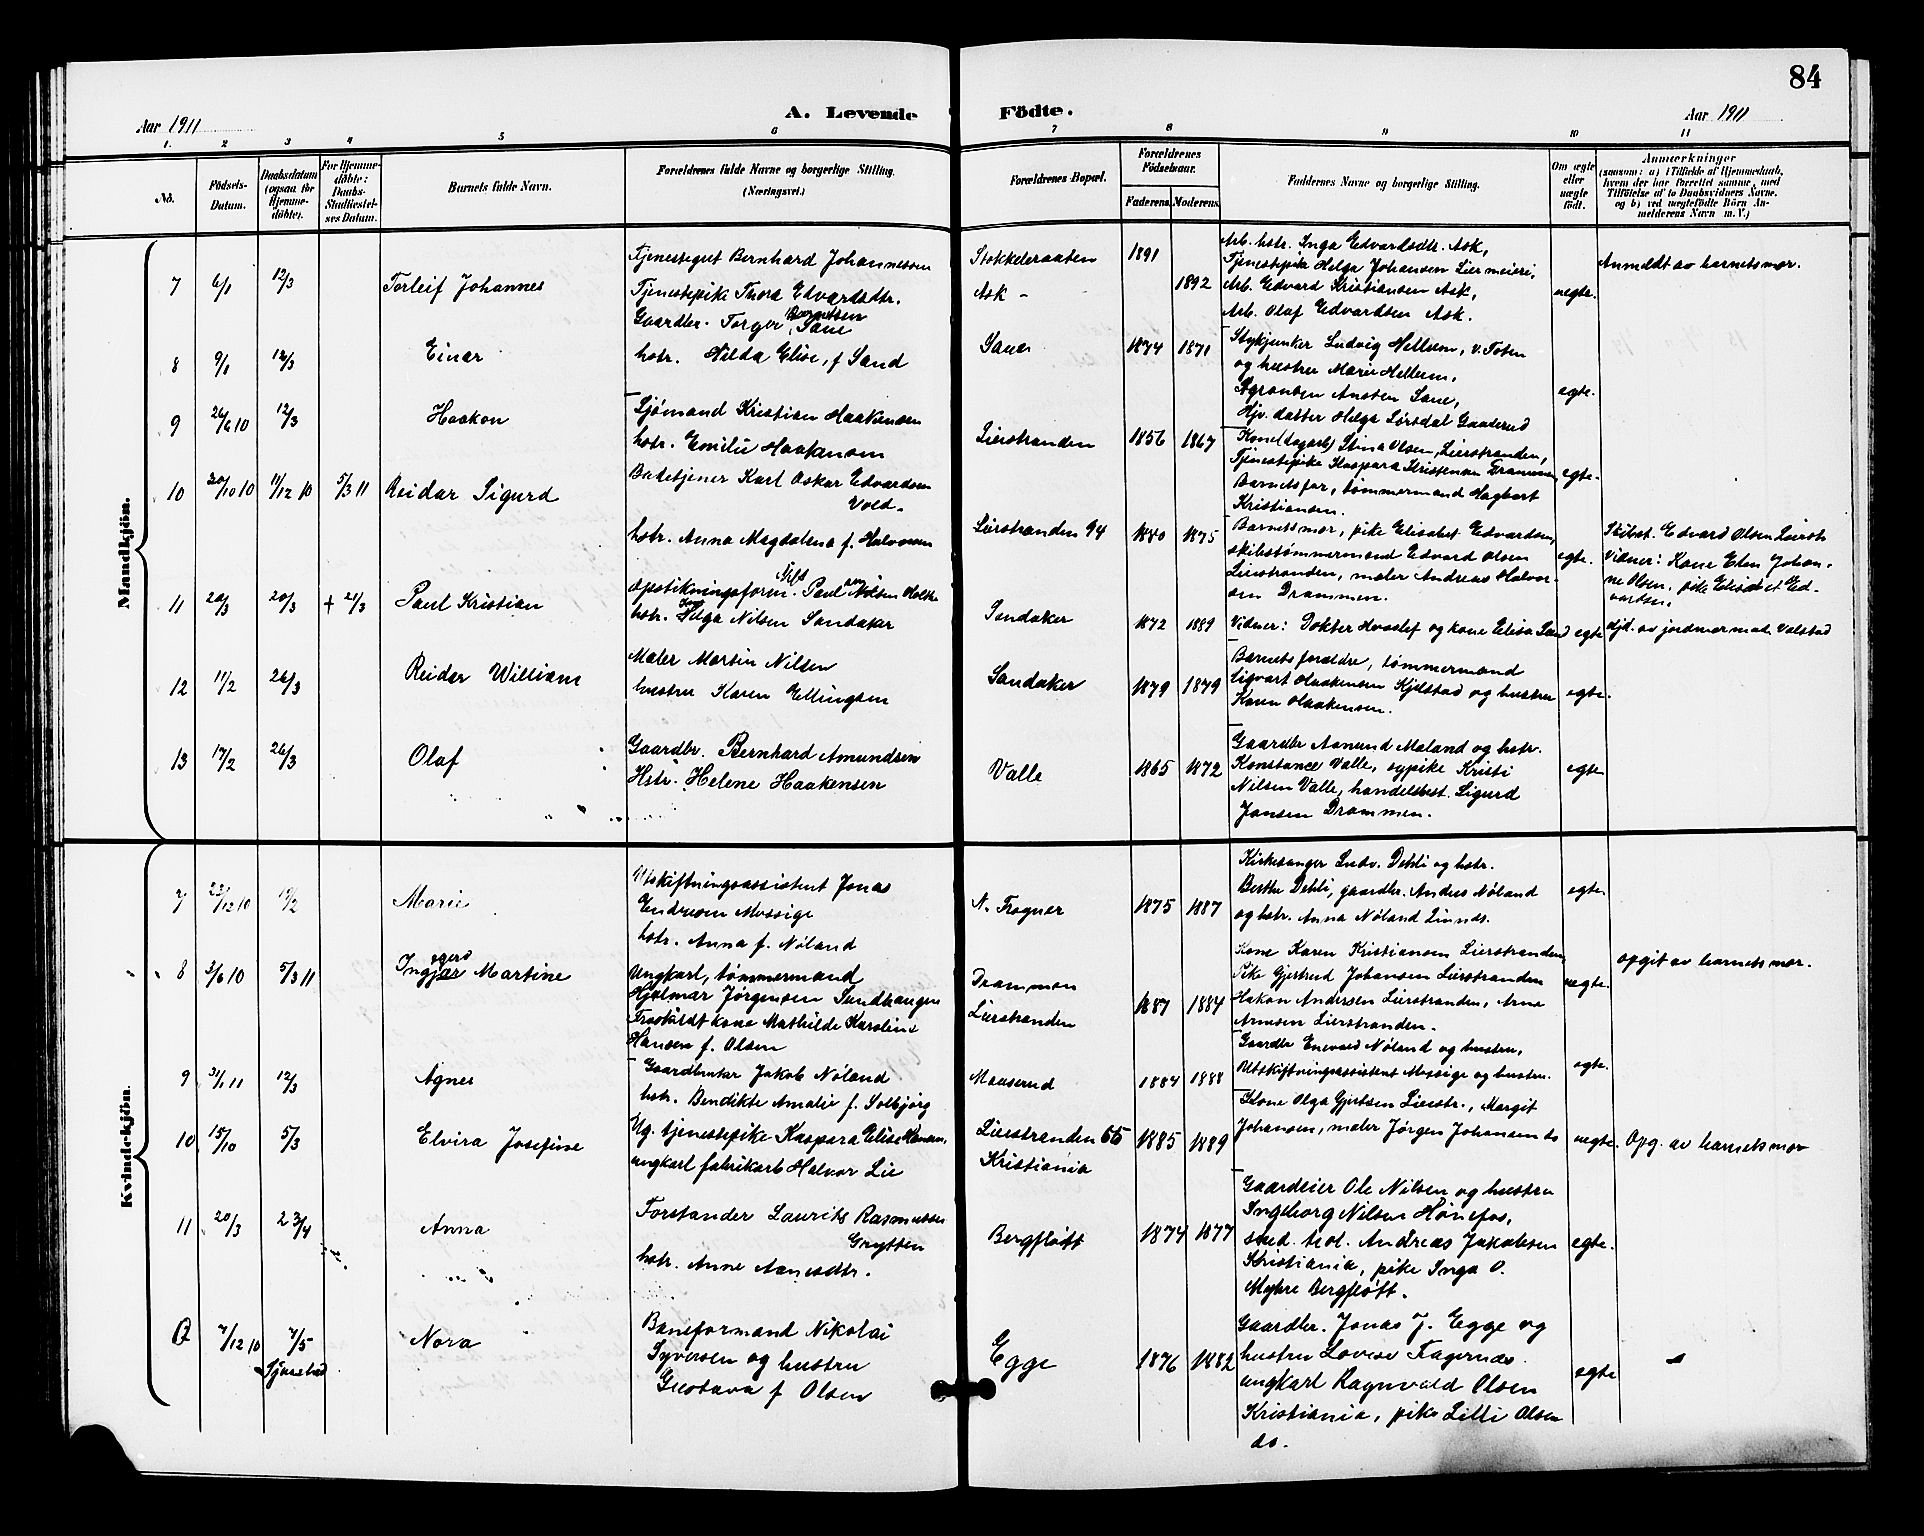 84
Aar 1911
A. Levende Födte.
Aar 1911
1. 2 3 4 5 6 7 8 9 10 11
No.
Födsels-
Datum.
Daabsdatum
(ogsaa for
Hjemme-
döbte).
For Hjemme-
döbte:
Daabs-
Stadfæstel-
ses Datum.
Barnets fulde Navn.
Forældrenes fulde Navne og borgerlige Stilling.
(Næringsvei.)
Forældrenes Bopæl.
Forældrenes
Födselsaar.
Faderens. Moderens.
Faddernes Navne og borgerlige Stilling.
Om ægte
eller
uægte
födt.
Anmærkninger
(saasom: a) i Tilfælde af Hjemmedaab,
hvem der har forrettet samme, med
Tilföielse af to Daabsvidners Navne.
og b) ved uægtefödte Börn An-
melderens Navn m. V.)
Mandkjön.
7 6/1 12/3 Torleif Johannes
Tjenestegut Bernhard Johannessen
Tjenestepike Thora Edvardsdtr.
Stokkeraaten 1891
Ask - 1892
Arb. hstr. Inga Edvardsdtr. Ask,
Tjenestepike Helga Johansen Liermeieri,
Arb. Edvard Kristiansen Ask,
Arb. Olaf Edvardsen Ask.
uegte.
Anmeldt av barnets mor.
8 9/1 12/3 Einar
Gaardbr. Torger Berntsen Saue
hstr. Hilda Elise, f Sand
Saue 1874 1871
Stykjunker Ludvig Hellum, v. Toten
og hustru Marie Hellum,
Agronom Ansten Saue,
Hjv. datter Helga Sørsdal Gaaserud
egte.
9 26/6 10 12/3 Haakon
Sjømand Kristian Haakensen
hstr. Emilie Haakensen
Lierstranden 1856 1867
Kone (dagarb) Stina Olsen, Lierstranden,
Tjenestepike Kaspara Kristensen Drammen,
Barnets far, tømmermand Hagbart
Kristiansen.
egte.
10 20/10 10 11/12 10 5/3 11 Reidar Sigurd
Budetjener Karl Oskar Edvardsen
Vold.
hstr. Anna Magdalena f. Halvorsen
Lierstranden 94 1880 1875
Barnets mor, pike Elisabet Edvardsen,
skibstømmermand Edvard Olsen
Lierstranden, maler Andreas Halvor-
sen Drammen.
egte.
Skibst. Edvard Olsen Lierst.
Vidner: Kone Elen Johan-
ne Olsen, pike Elisabet Ed-
vardsen.
11 20/3 20/3 + 21/3 Paul Kristian
Opstikningsform. Paul Nilsen Holte
hstr. Helga Nilsen Sandaker
Sandaker 1872 1889
Vidner: Dokter Hvoslef og kone Elisa Sand
egte
Hjd. av jordmor mat. Valstad
12 11/2 26/3 Reidar William
Maler Martin Nilsen
hustru Karen Ellingsen
Sandaker 1879 1879
Barnets forældre, tømmermand
Sigvart Haakensen Kjelstad og hustru
Karen Haakensen.
egte.
13 17/2 26/3 Olaf
Gaardbr. Bernhard Amundsen
Hstr. Helene Haakensen
Valle 1865 1872
Gaardbr Asmund Maland og hstr.
Konstance Valle, sypike Kristi
Nilsen Valle, handelsbest. Sigurd
Jansen Drammen.
egte
Kvindekjön.
7 23/12 10 19/2 Marie
Utskiftningsassistent Jonas
Endresen Mossige
hstr. Anna f. Nøland
N. Frogner 1875 1887
Kirkesanger Ludv. Dehli og hstr.
Berthe Dehli, gaardbr. Anders Nøland
og hstr. Anna Nøland Linnes.
egte.
8 3/6 10 5/3 11 Ingjær egerd Martine
Ungkarl, tømmermand
Hjalmar Jørgensen Sundhaugen
Fraskildt kone Mathilde Karoline
Hansen f. Olsen
Drammen
Lierstranden
1887 1884
Kone Karen Kristiansen Lierstranden
Pike Gjertrud Johansen Lierstranden
Hakon Andersen Lierstranden, Arne
Arnesen Lierstranden.
uegte.
opgit av barnets mor.
9 31/1 11 12/3 Agnes
Gaardbruker Jakob Nøland
hstr. Bendikte Amalie f. Solbjørg
Meuserud 1884 1888
Gaardbr Enevald Nøland og hustru,
Utskiftningsassistent Mossige og hustru.
egte.
10 15/10 5/3 Elvira Josefine
Ug. tjenestepike Kaspara Elise Hansen,
ungkarl fabrikarb Halvor Lie
Lierstranden 65
Kristiania
1885 1889
Kone Olga Gjertsen Lierstr., Margit
Johansen, maler Jørgen Johansen ds
uegte.
Opg. av barnets mor
11 20/3 23/4 Anna
Forstander Laurits Rasmussen
Grytten
hstr. Anne Aanesdtr.
Bergfløtt 1874 1877
Gaardeier Ole Nilsen og hustru
Ingeborg Nilsen Hønefos,
stud. teol. Andreas Jakobsen
Kristiania, pike Inga O.
Myhre Bergfløtt.
egte.
12 7/12 10 7/5 Nora
Baneformand Nikolai
Syversen og hustru
Gustava f Olsen
Egge 1876 1882
Gaardbr. Jonas J. Egge og
hustru Lovise Fagernæs
ungkarl Ragnvald Olsen
Kristiania, pike Lilli Olsen
ds.
egte